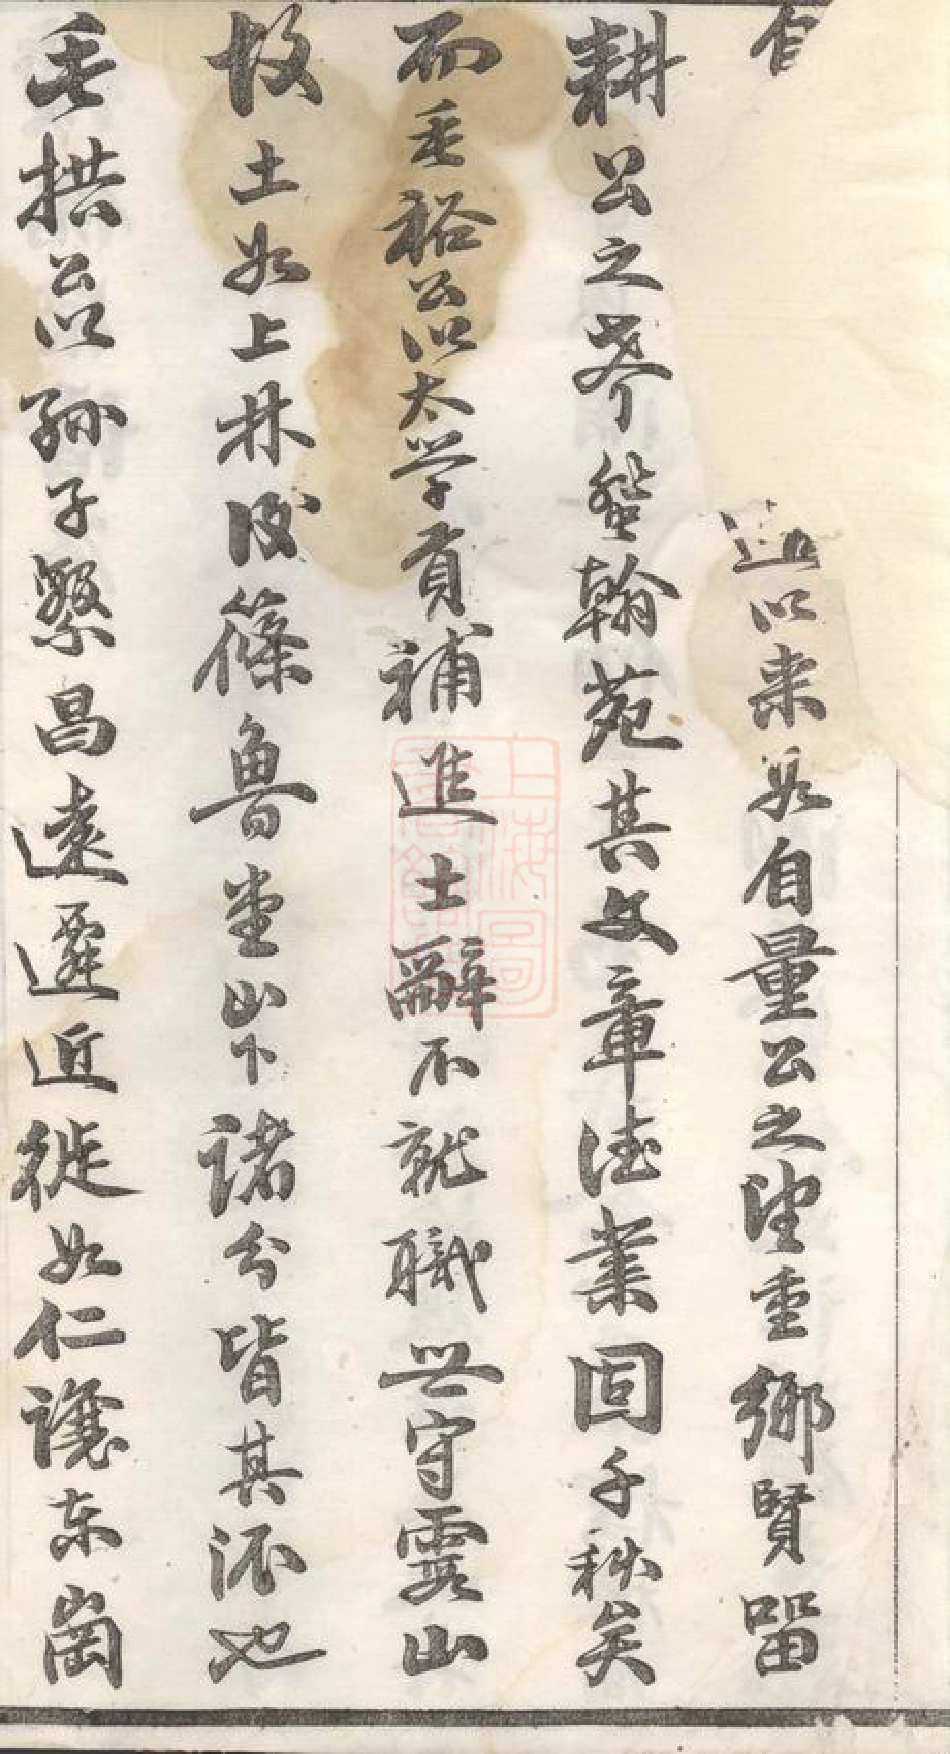 迆以来如自量公之望重鄉賢留
耕公之齐蜚翰苑其文章德業固千秋矣
而垂裕公以太学貢補進士辭不就職世守霞山
故土如上林後篠魯堂山下諸分皆其派也
垂拱公以孙子繁昌遠遷近徙如仁讓东崗
上海圖